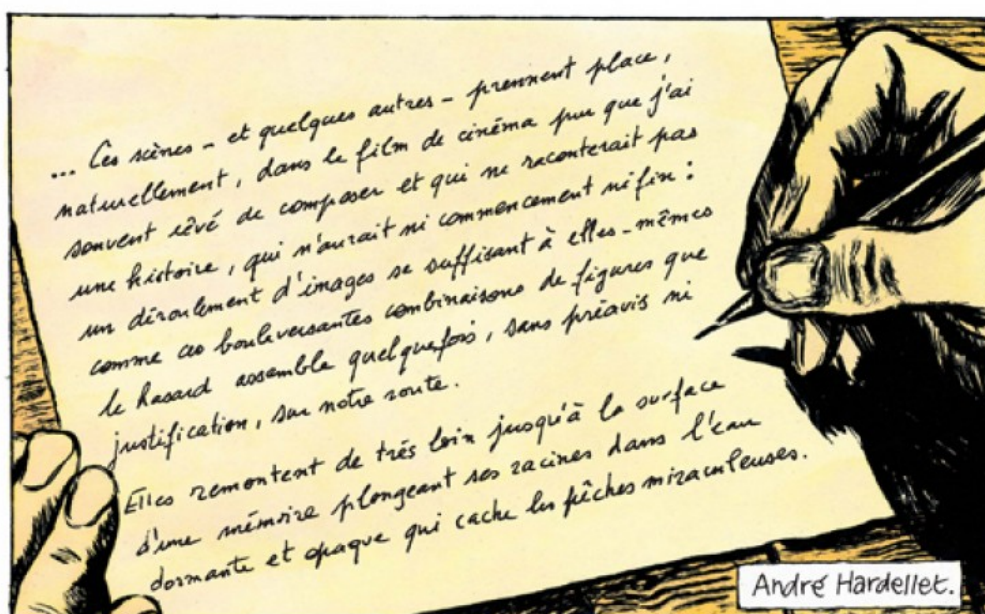 ... Ces scènes – et quelques autres – prennent place,
naturellement, dans le film de cinéma pur que j'ai
souvent rêvé de composer et qui ne raconterait pas
une histoire, qui n'aurait ni commencement ni fin :
un déroulement d'images se suffisant à elles-mêmes
comme ces bouleversantes combinaisons de figures que
le hasard assemble quelquefois, sans préavis ni
justification, sur notre route.
Elles remontent de très loin jusqu'à la surface
d'une mémoire plongeant ses racines dans l'eau
dormante et opaque qui cache les pêches miraculeuses.
André Hardellet.